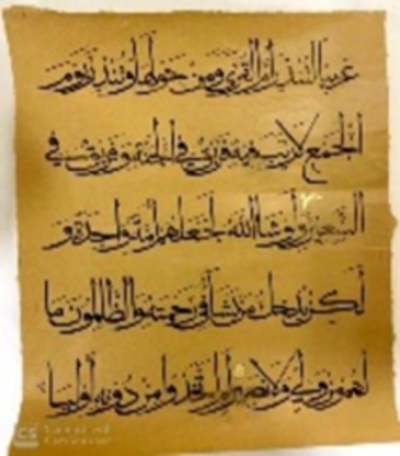 عربيا لتنذر أم القرى ومن حولها وتنذر يوم
الجمع لا ريب فيه فريق في الجنة وفريق في
السعير ولو شا الله لجعلهم أمة واحدة و
لكن يدخل من يشا في رحمته والظالمون ما
لهم من ولي ولا نصير أم اتخذوا من دونه أوليا
CS